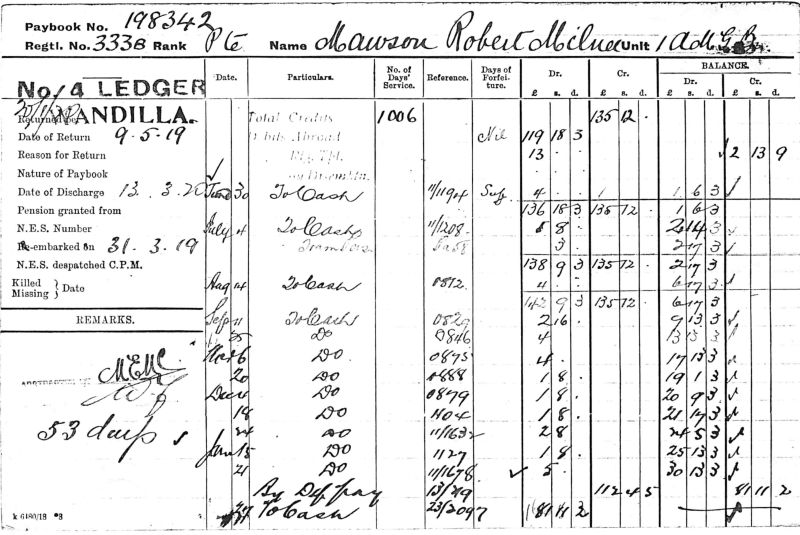 Paybook No. 198342
Regtl. No. 333B Rank Pte Name Mawson Robert Milne Unit 1 A M G B
No/4 LEDGER
Date. Particulars. No. of Days' Service. Reference. Days of Forfeiture. Dr. £ s. d. Cr. £ s. d. BALANCE. Dr. £ s. d. Cr. £ s. d.
Returned per KANDILLA.
Total Credits 1006 135 12 .
Date of Return 9.5.19
Debits Abroad Nil 119 18 3
Reason for Return
13 . 2 13 9
Nature of Paybook
on Disembn.
Date of Discharge 13.3.20
June 30 To Cash 11/1194 4 . 1 . 1 6 3
Pension granted from
136 18 3 135 12 . 1 6 3
N.E.S. Number
July 4 To Cash 11/1208 8 . 2 14 3
Re-embarked on 31.3.19
3 . 2 17 3
N.E.S. despatched C.P.M.
138 9 3 135 12 . 2 17 3
Killed Missing } Date
Aug 14 To Cash 0812 4 . 6 17 3
142 9 3 135 12 . 6 17 3
REMARKS.
Sep 11 To Cash 2 16 . 9 13 3
25 Do 0846 4 13 13 3
6 Do 0875 4 . 17 13 3
20 Do 0888 1 8 . 19 1 3
Dec 4 Do 0879 1 8 . 20 9 3
18 Do 1104 1 8 . 21 17 3
53 days
24 Do 11/1632 2 8 24 5 3
Jan 15 Do 1127 1 8 . 25 13 3
21 Do 11/1678 5 . 30 13 3
By Def pay 13/219 112 4 5 81 11 2
To Cash 23/2097 81 11 2
k 6480/18